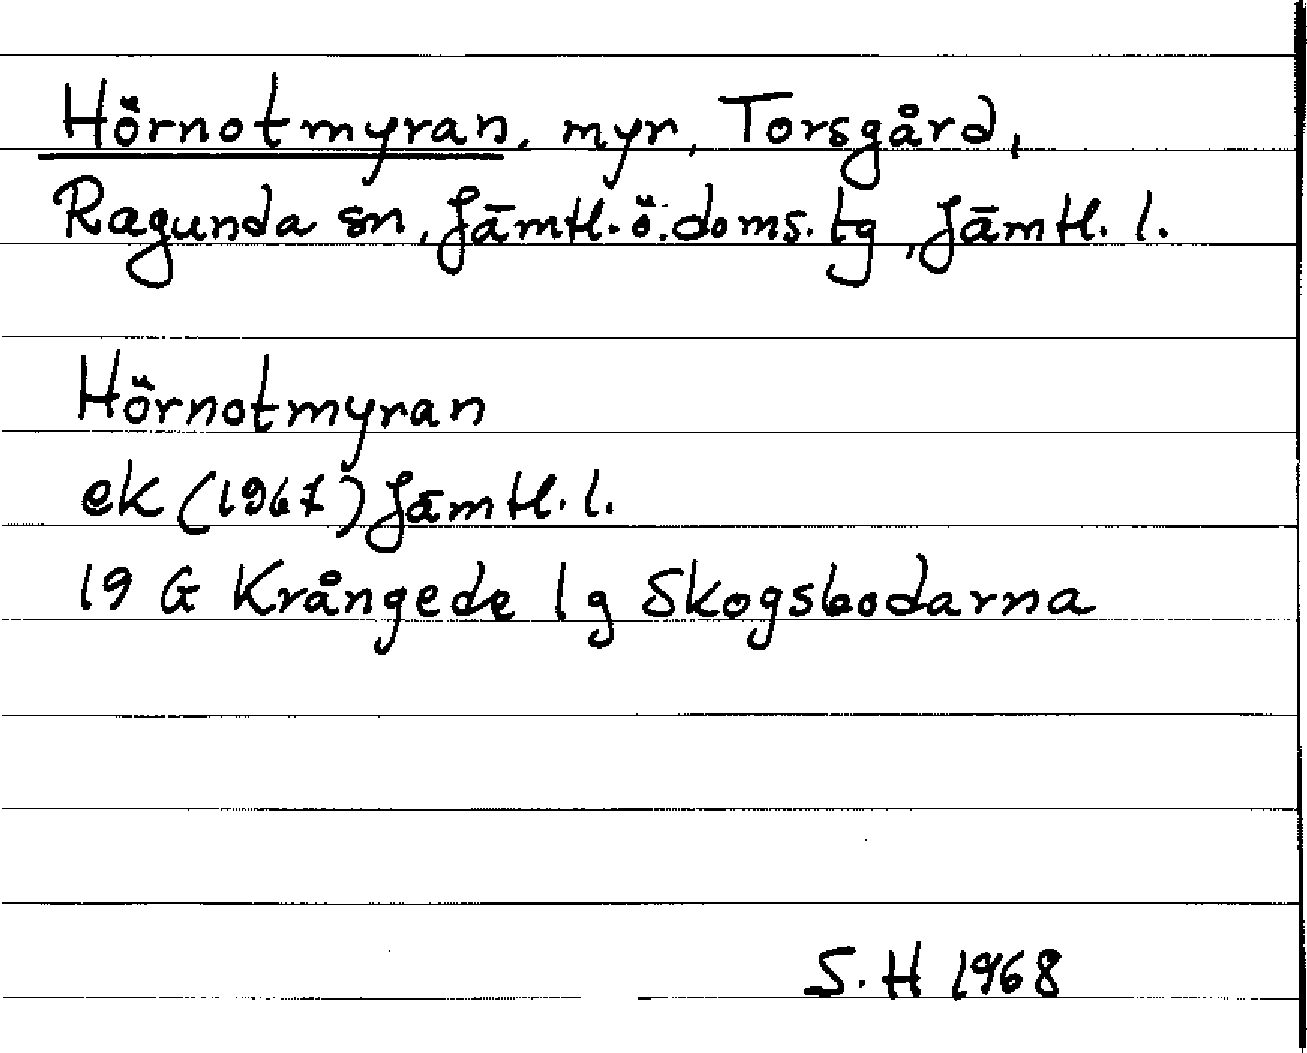 Hörnotmyran, myr, Torsgård,
Ragunda sn, Jämtl. ö. doms. tg, Jämtl. l.
Hörnotmyran
ek (1967) Jämtl. l.
19 G Krångede 1g Skogsbodarna
S. H 1968